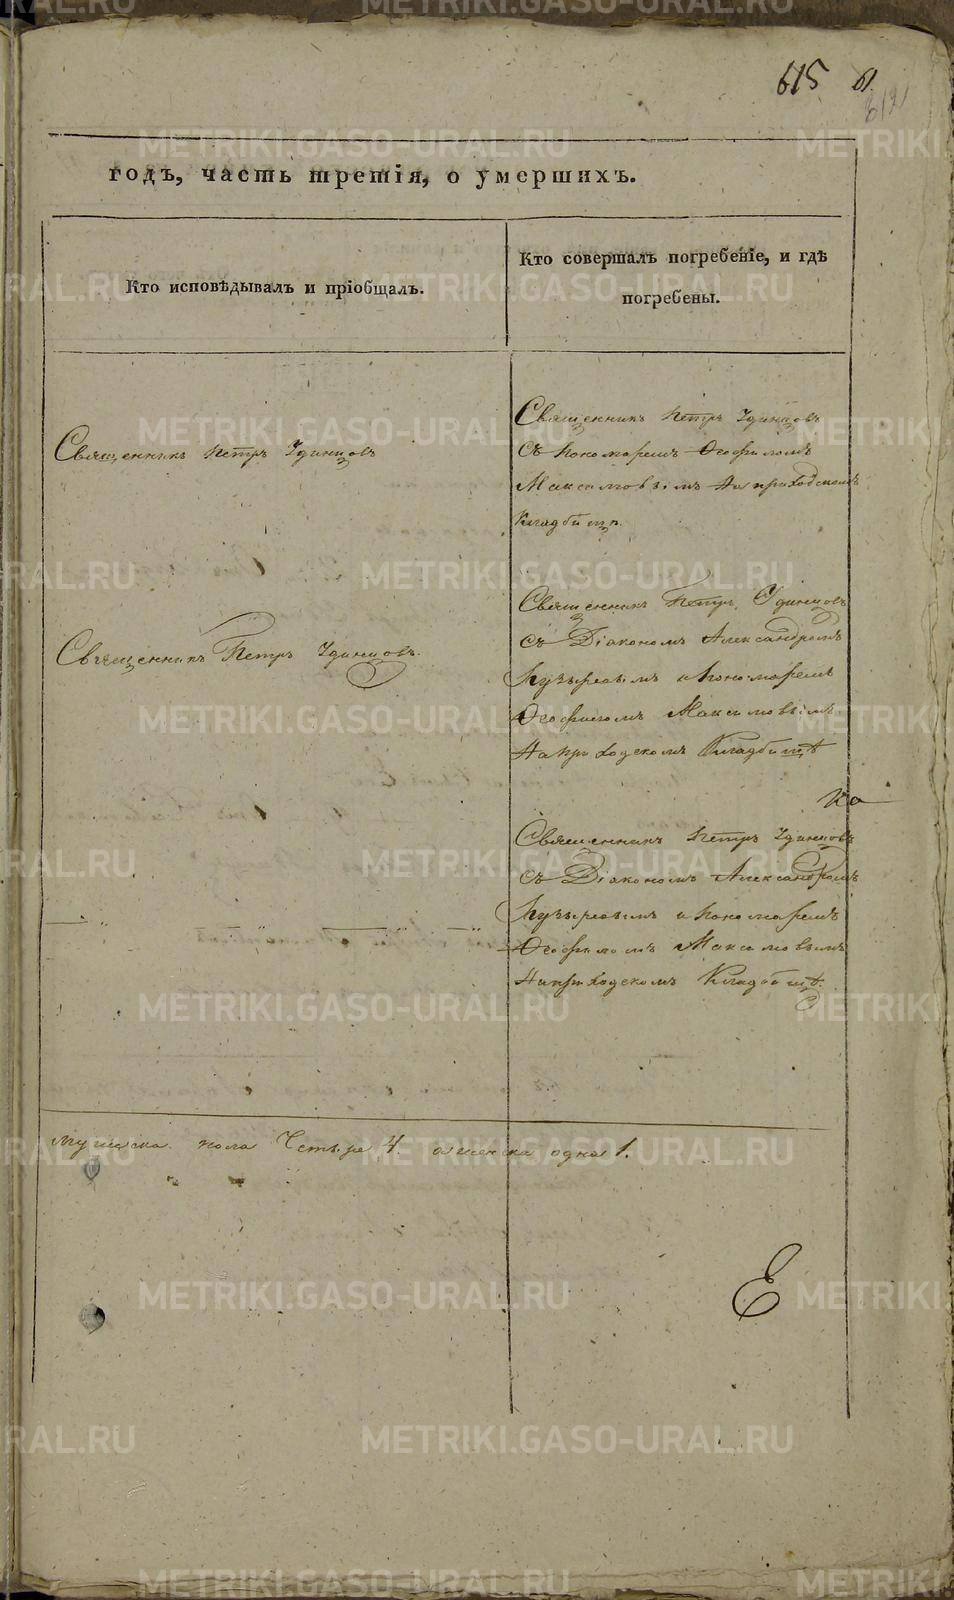 615
61.
годъ, часть третія, о умершихъ.
Кто исповѣдывалъ и пріобщалъ.
Кто совершалъ погребеніе, и гдѣ
погребены.
Священникъ Петръ Удинцовъ
Священникъ Петръ Удинцовъ
съ пономаремъ Ѳеофиломъ
Максимовымъ на приходскомъ
кладбищѣ.
Священникъ Петръ Удинцовъ.
Священникъ Петръ Удинцовъ
съ Діакономъ Александромъ
Пузыревымъ и пономаремъ
Ѳеофиломъ Максимовымъ
на приходскомъ кладбищѣ
Священникъ Петръ Удинцовъ
съ Діакономъ Александромъ
Пузыревымъ и пономаремъ
Ѳеофиломъ Максимовымъ
на приходскомъ кладбищѣ.
мужеска пола четыре 4. а женска одна 1.
METRIKI.GASO-URAL.RU